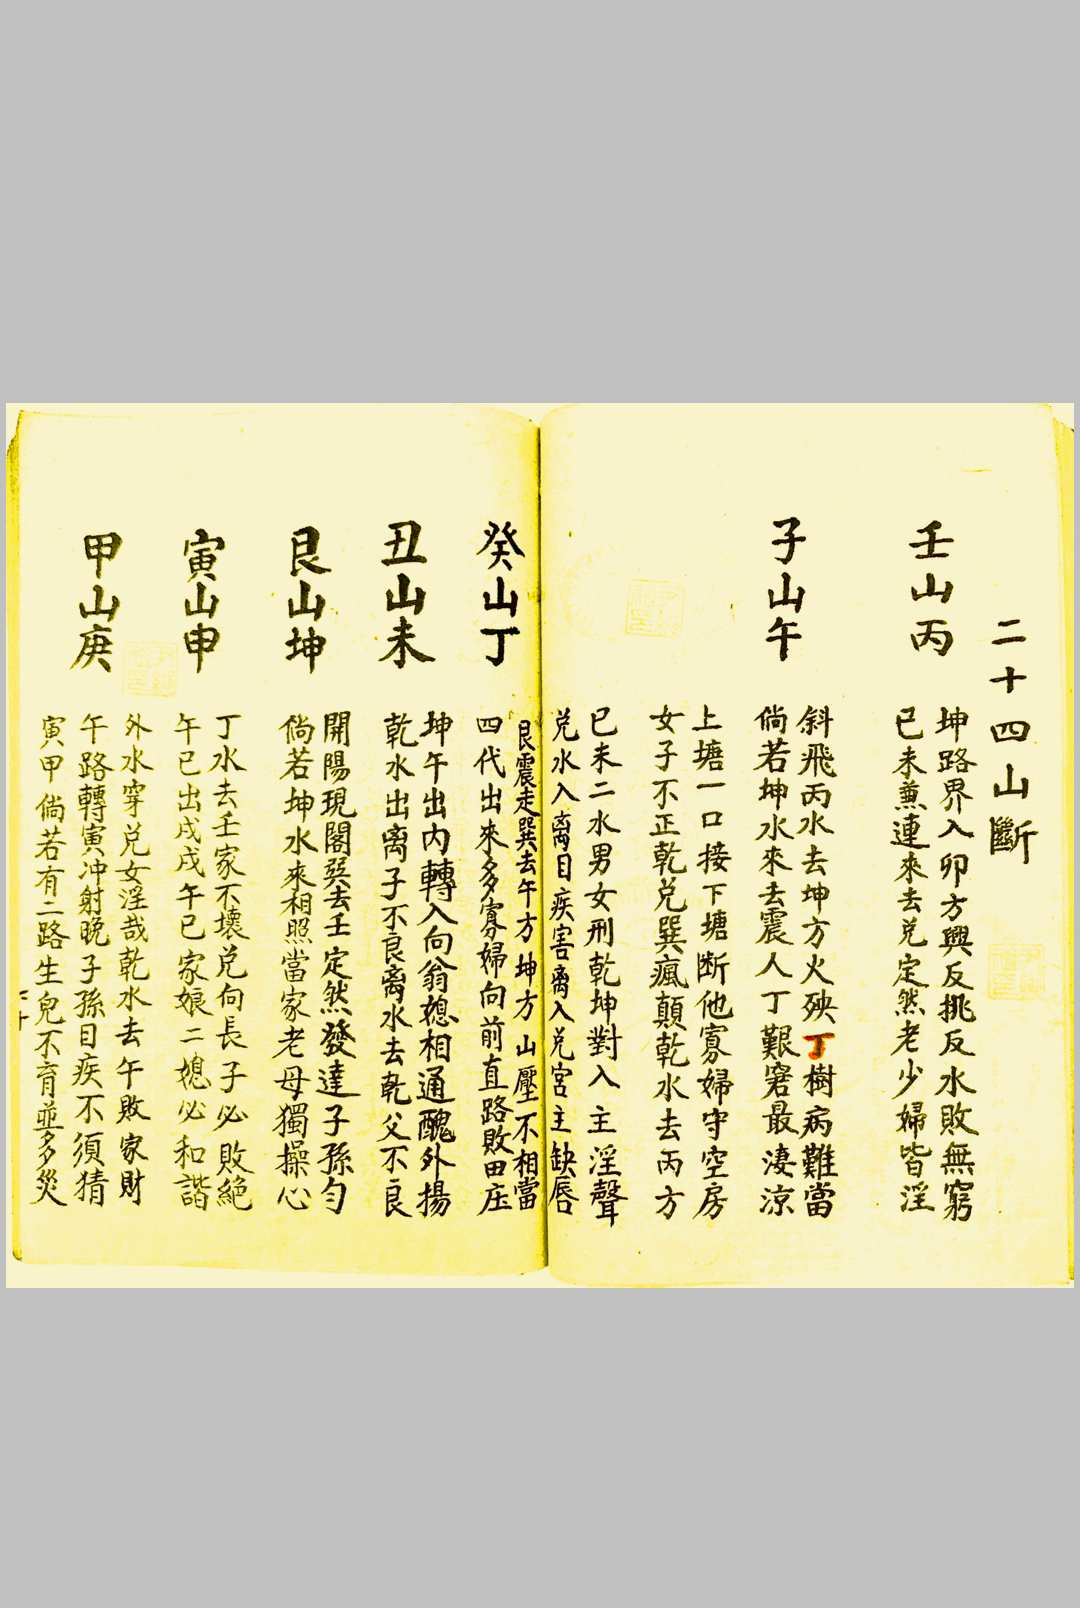 二十四山斷
壬山丙
坤路界入卯方興反挑反水敗無窮
已未兼連來去兑定然老少婦皆淫
子山午
斜飛丙水去坤方火殃丁樹病難當
倘若坤水來去震人丁艱窘最淒涼
上塘一口接下塘断他寡婦守空房
女子不正乾兑巽瘋顛乾水去丙方
已未二水男女刑乾坤對入主淫聲
兑水入离目疾害离入兑宮主缺唇
癸山丁
艮震走巽去午方坤方山壓不相當
四代出來多寡婦向前直路敗田庄
丑山未
坤午出内轉入向翁媳相通醜外揚
乾水出离子不良离水去乾父不良
艮山坤
開陽現閣巽去壬定然發達子孫勻
倘若坤水來相照當家老母獨操心
寅山申
丁水去壬家不壞兑向長子必敗絕
午巳出戌戌午巳家娘二媳必和諧
甲山庚
外水穿兑女淫哉乾水去午敗家財
午路轉寅冲射晚子孫目疾不須猜
寅甲倘若有二路生兒不育並多災